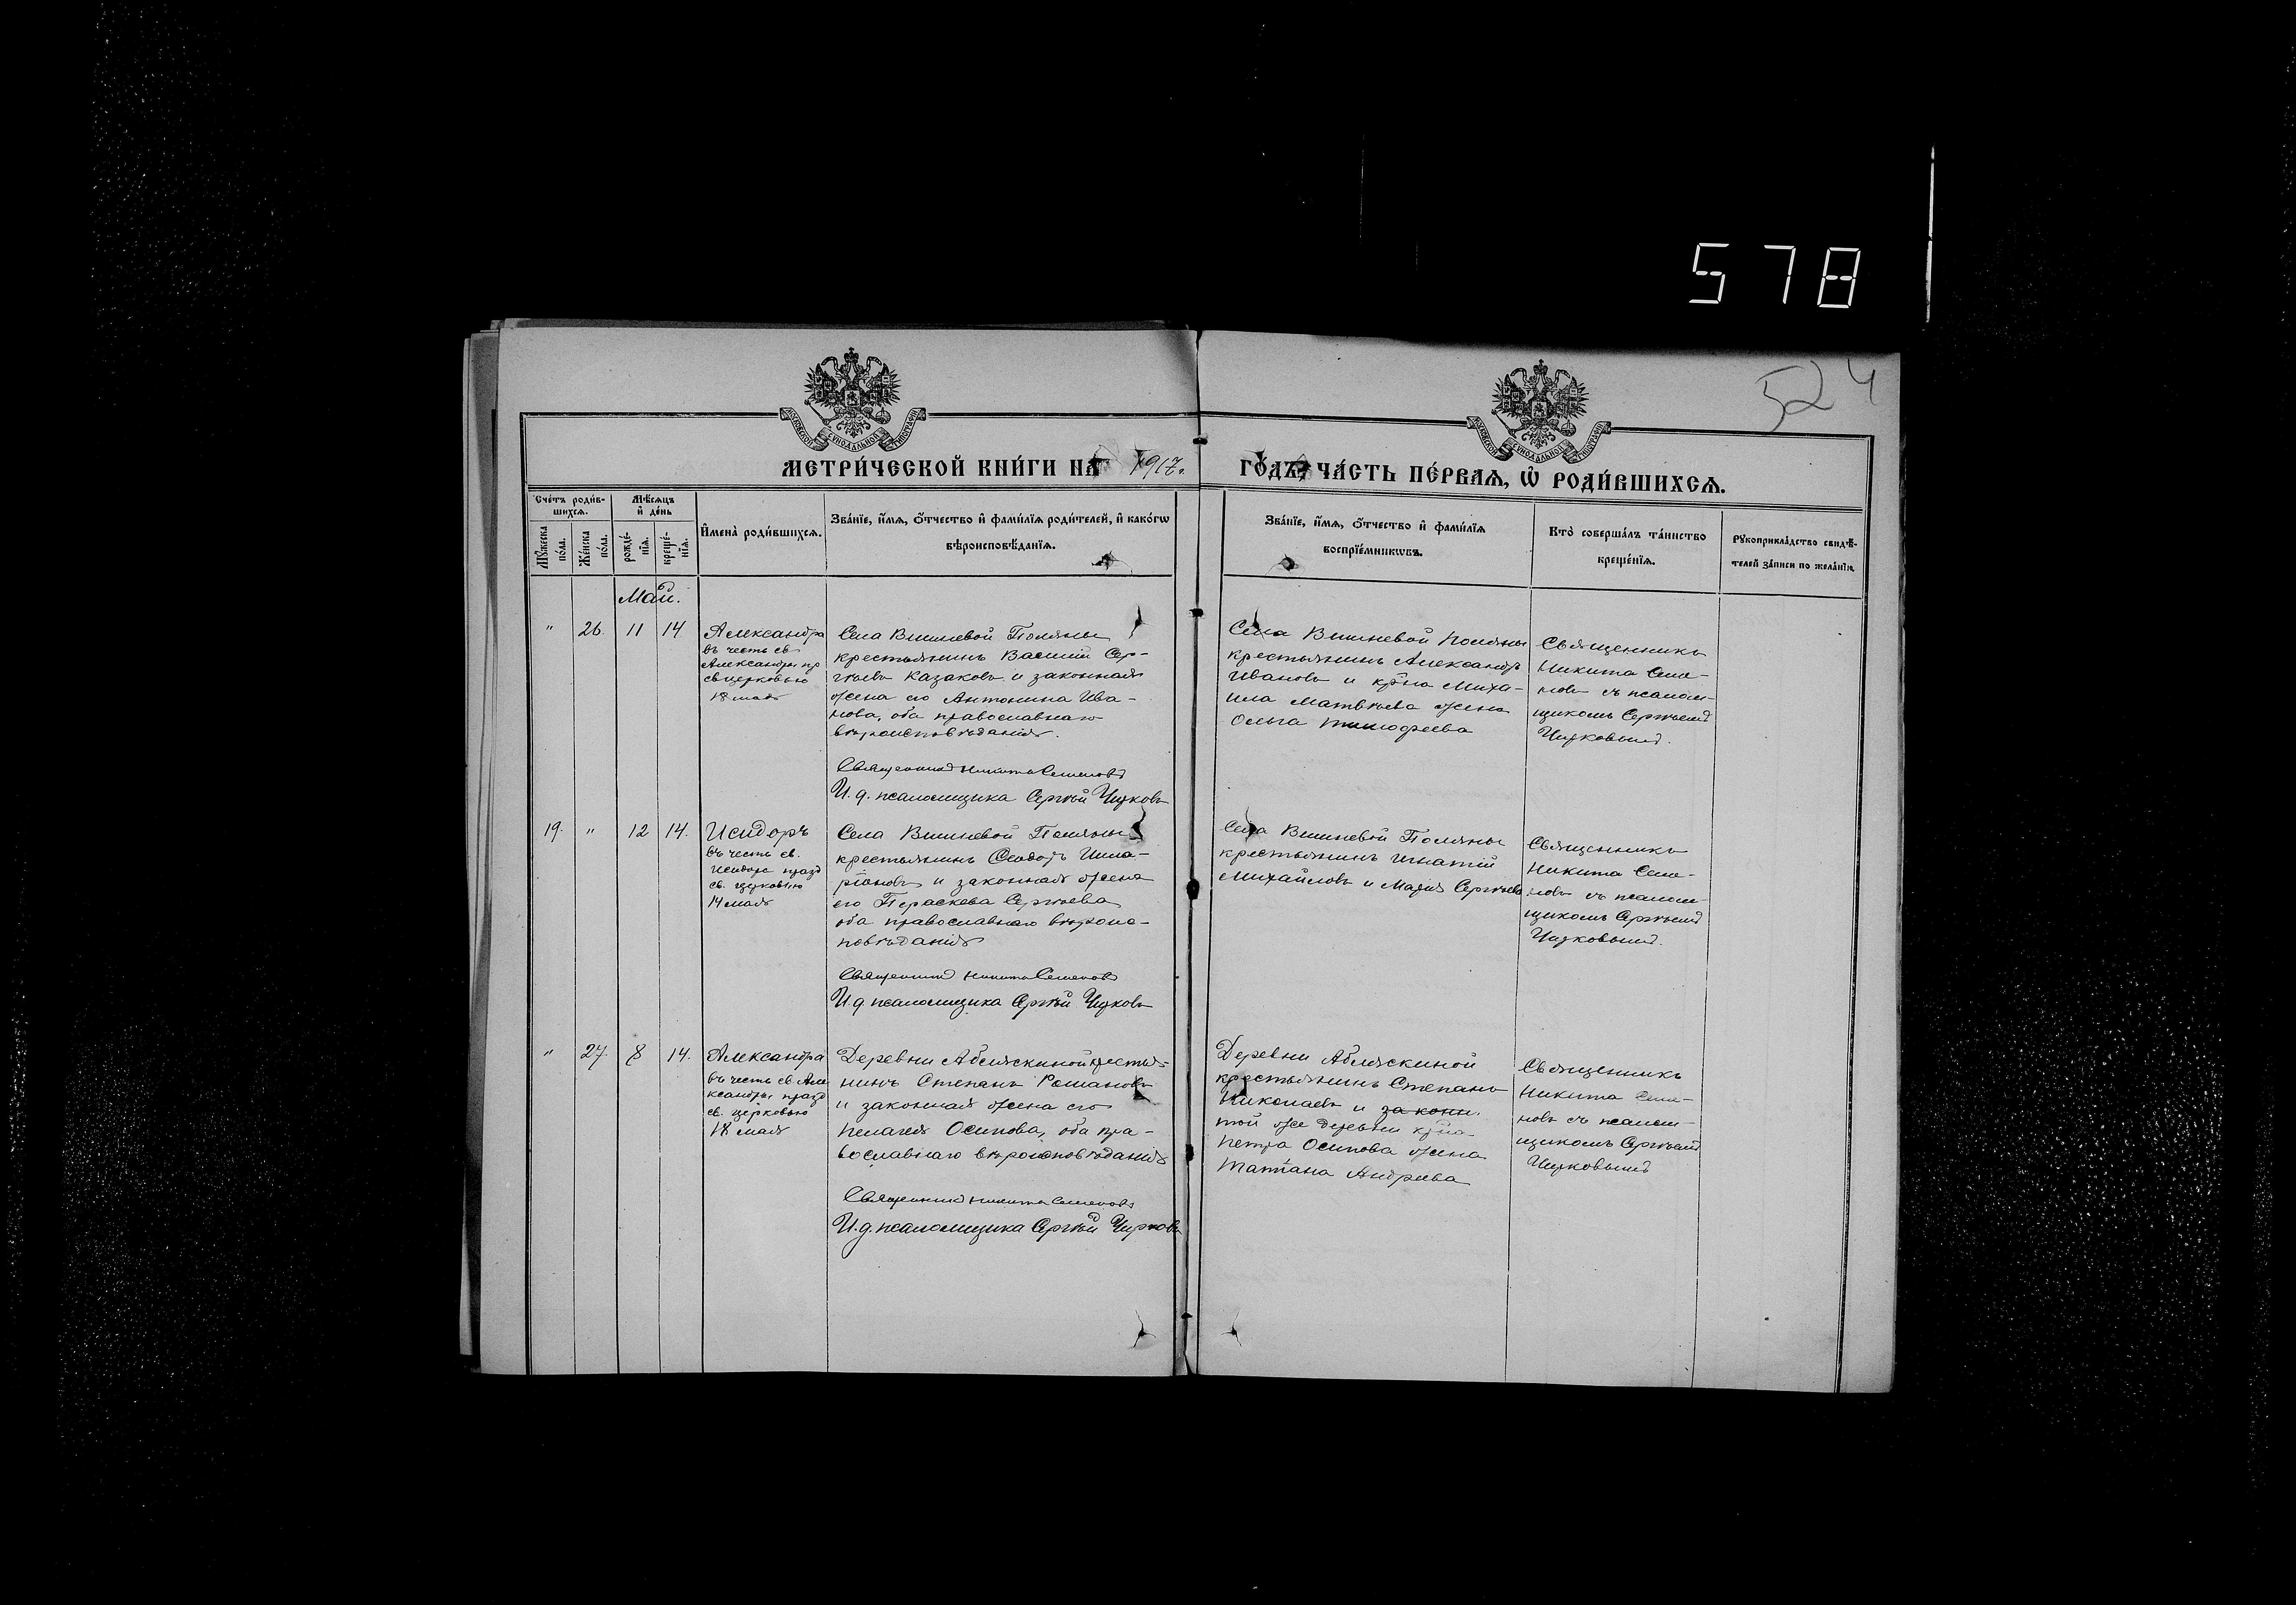 578
524
МОСКОВСКОЙ СѴНОДАЛЬНОЙ ТИПОГРАФІИ
МОСКОВСКОЙ СѴНОДАЛЬНОЙ ТИПОГРАФІИ
МЕТРИ́ЧЕСКОЙ КНИ́ГИ НА 1917. ГО́ДЪ, ЧА́СТЬ ПЕ́РВАѦ, Ѽ РОДИ́ВШИХСѦ.
Сче́тъ роди́в-
шихсѧ.
Мꙋ́жеска по́ла.
Же́нска по́ла.
Мѣ́сѧцъ
и҆ де́нь
рожде́-
нїѧ.
креще́-
нїѧ.
И҆мена̀ роди́вшихсѧ.
Зва́нїе, и҆́мѧ, ѻ҆́тчество и҆ фами́лїѧ роди́телей, и҆ како́гѡ
вѣроисповѣ́данїѧ.
Зва́нїе, и҆́мѧ, ѻ҆́тчество и҆ фами́лїѧ
воспрїе́мникѡвъ.
Кто̀ соверша́лъ та́инство
креще́нїѧ.
Рꙋкоприкла́дство свидѣ́-
телей за́писи по жела́нїю.
Май.
" 26. 11 14
Александра
въ честь св
Александры пр
св церковью
18 мая
Села Вишневой Поляны
крестьянинъ Василій Сер-
гѣевъ Казаковъ и законная
жена его Антонина Ива-
нова, оба православнаго
вѣроисповѣданія.
Священникъ Никита Семеновъ
И. д. псаломщика Сергѣй Чирковъ
Села Вишневой Поляны
крестьянинъ Александръ
Ивановъ и кр-на Миха-
ила Матвѣева жена
Ольга Тимофеева
Священникъ
Никита Семе-
новъ съ псалом-
щикомъ Сергѣемъ
Чирковымъ.
19. " 12 14.
Исидоръ
въ честь св.
Исидора празд
св. церковію
14 мая
Села Вишневой Поляны
крестьянинъ Ѳеодоръ Илла-
ріоновъ и законная жена
его Параскева Сергѣева
оба православнаго вѣроис-
повѣданія
Священникъ Никита Семеновъ
И. д псаломщика Сергѣй Чирковъ
Села Вишневой Поляны
крестьянинъ Игнатій
Михайловъ и Марія Сергѣева
Священникъ
Никита Семе-
новъ съ псалом-
щикомъ Сергѣемъ
Чирковымъ.
" 27. 8 14.
Александра
въ честь св Але
ксандры празд
св. церковью
18 мая
Деревни Абляскиной крестья-
нинъ Степанъ Романовъ
и законная жена его
Пелагея Осипова, оба пра-
вославнаго вѣроисповѣданія
Священникъ Никита Семеновъ
И. д. псаломщика Сергѣй Чирковъ
Деревни Абляскиной
крестьянинъ Степанъ
Николаевъ и за конн.
той же деревни кр-на
Петра Осипова жена
Татіана Андреева
Священникъ
Никита Семе-
новъ съ псалом-
щикомъ Сергѣемъ
Чирковымъ